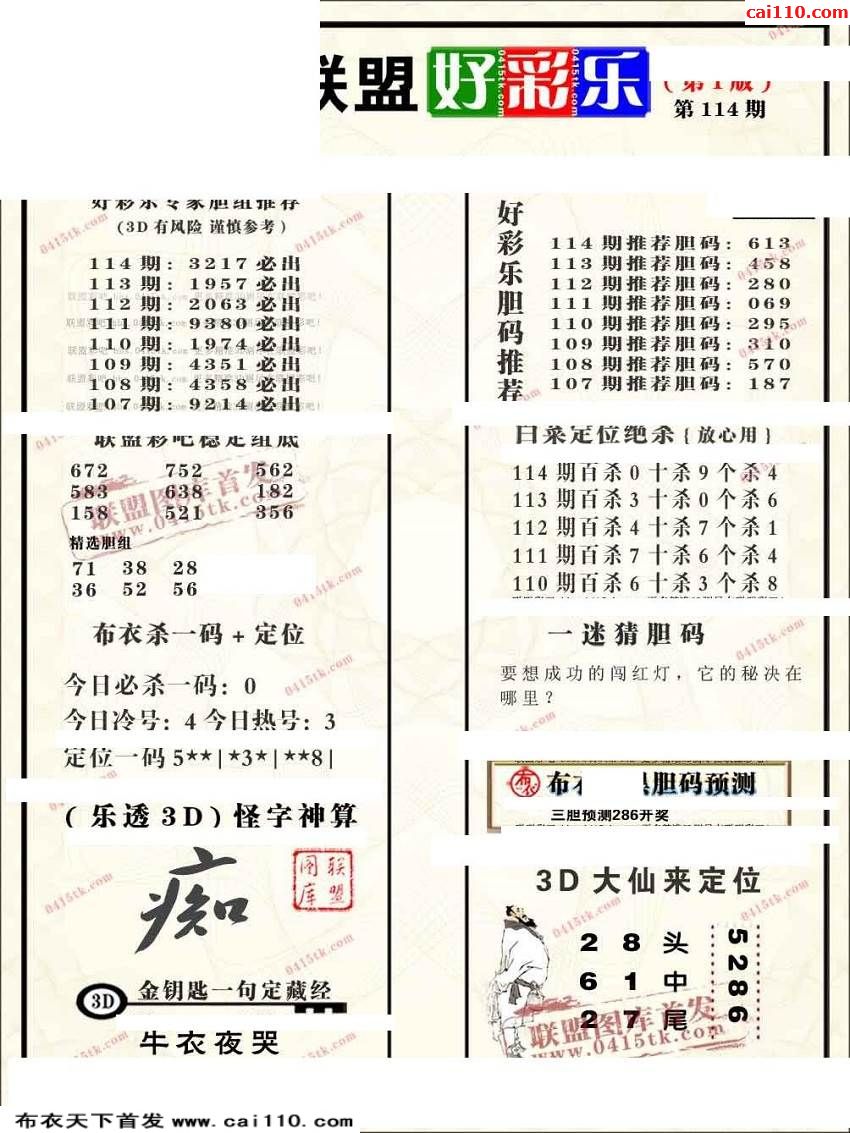 cai110.com
联盟 好彩乐
(第1版)
第114期
好彩乐专家胆组推荐
(3D有风险 谨慎参考)
114期: 3217必出
113期: 1957必出
112期: 2063必出
111期: 9380必出
110期: 1974必出
109期: 4351必出
108期: 4358必出
107期: 9214必出
联盟彩吧稳定组底
672 752 562
583 638 182
158 521 356
精选胆组
71 38 28
36 52 56
布衣杀一码+定位
今日必杀一码: 0
今日冷号: 4 今日热号: 3
定位一码 5**|*3*|**8|
(乐透3D)怪字神算
痴
联盟图库
3D 金钥匙一句定藏经
牛衣夜哭
好彩乐胆码推荐
114期推荐胆码: 613
113期推荐胆码: 458
112期推荐胆码: 280
111期推荐胆码: 069
110期推荐胆码: 295
109期推荐胆码: 310
108期推荐胆码: 570
107期推荐胆码: 187
白菜定位绝杀{放心用}
114期百杀0十杀9个杀4
113期百杀3十杀0个杀6
112期百杀4十杀7个杀1
111期百杀7十杀6个杀4
110期百杀6十杀3个杀8
一迷猜胆码
要想成功的闯红灯，它的秘决在
哪里？
布衣 胆码预测
三胆预测286开奖
3D大仙来定位
2 8 头
6 1 中
2 7 尾
5286
联盟图库首发
www.0415tk.com
布衣天下首发 www.cai110.com